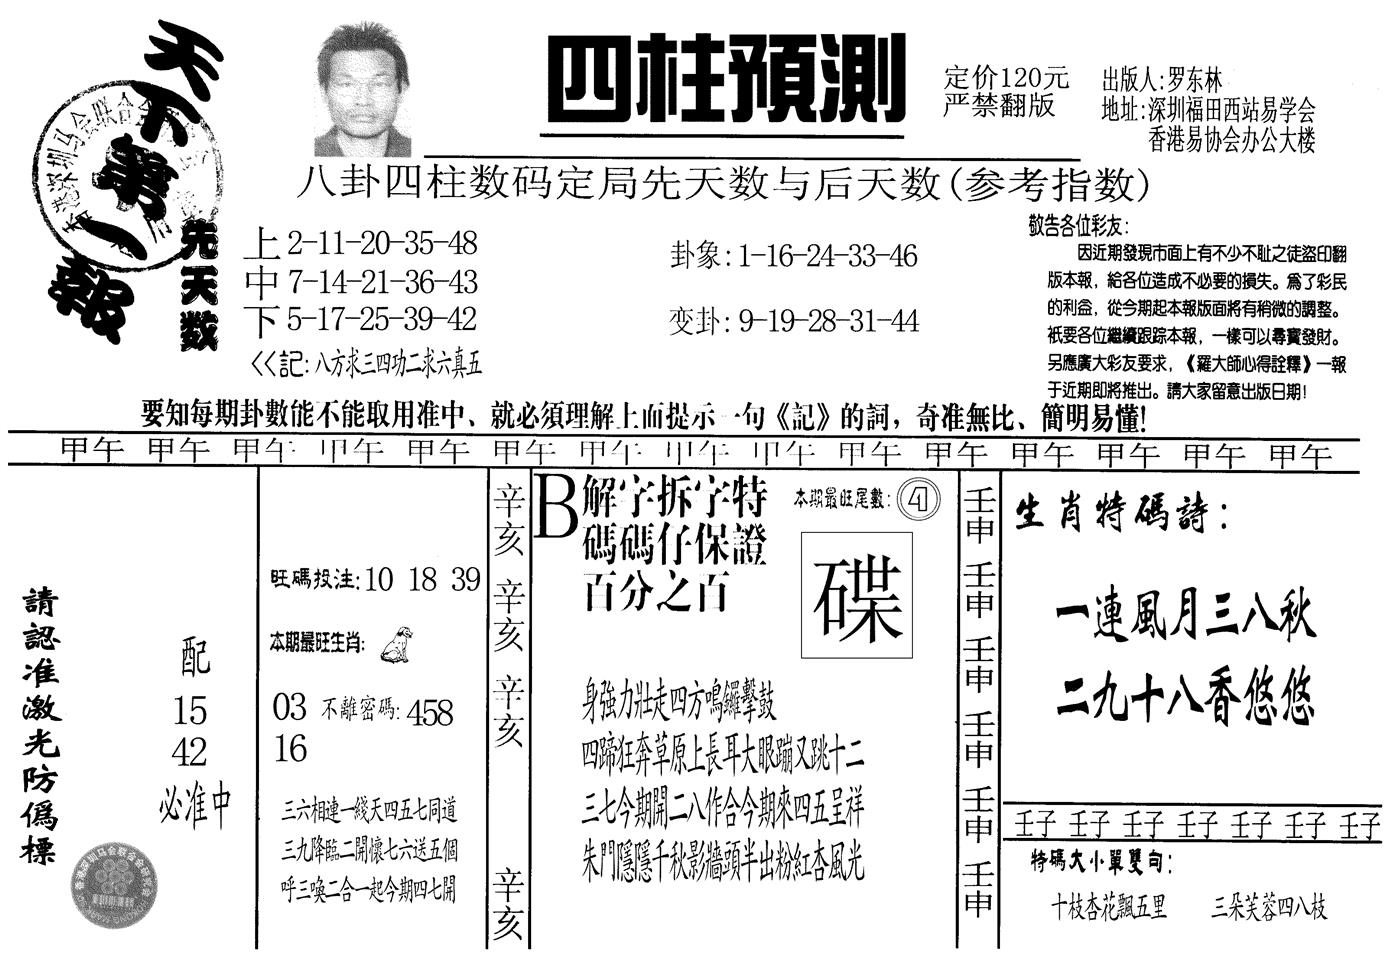 天下第一報
四柱預測
定价120元
严禁翻版
出版人:罗东林
地址:深圳福田西站易学会
香港易协会办公大楼
八卦四柱数码定局先天数与后天数(参考指数)
先天数
上 2-11-20-35-48
中 7-14-21-36-43
下 5-17-25-39-42
<<記:八方求三四功二求六真五
卦象:1-16-24-33-46
变卦:9-19-28-31-44
敬告各位彩友:
因近期發現市面上有不少不耻之徒盜印翻
版本報，給各位造成不必要的損失。爲了彩民
的利益，從今期起本報版面將有稍微的調整。
衹要各位繼續跟踪本報，一樣可以尋寶發財。
另應廣大彩友要求，《羅大師心得詮釋》一報
于近期即將推出。請大家留意出版日期!
要知每期卦數能不能取用准中、就必須理解上面提示一句《記》的詞，奇准無比、簡明易懂!
甲午 甲午 甲午 甲午 甲午 甲午 甲午 甲午 甲午 甲午 甲午 甲午 甲午 甲午 甲午
請認准激光防僞標
配
15
42
必准中
旺碼投注:10 18 39
本期最旺生肖:
03 不離密碼:458
16
三六相連一綫天四五七同道
三九降臨二開懷七六送五個
呼三喚二合一起今期四七開
辛亥 辛亥 辛亥 辛亥
B
解字拆字特
碼碼仔保證
百分之百
本期最旺尾數:4
碟
身強力壯走四方鳴鑼擊鼓
四蹄狂奔草原上長耳大眼蹦又跳十二
三七今期開二八作合今期來四五呈祥
朱門隱隱千秋影牆頭半出粉紅杏風光
壬申 壬申 壬申 壬申 壬申 壬申
生肖特碼詩:
一連風月三八秋
二九十八香悠悠
壬子 壬子 壬子 壬子 壬子 壬子 壬子
特碼大小單雙句:
十枝杏花飄五里 三朵芙蓉四八枝